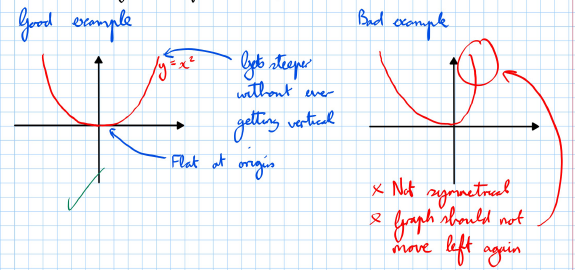 Good example
y = x²
Gets steeper
without ever
getting vertical
Flat at origin
Bad example
× Not symmetrical
× Graph should not
move left again